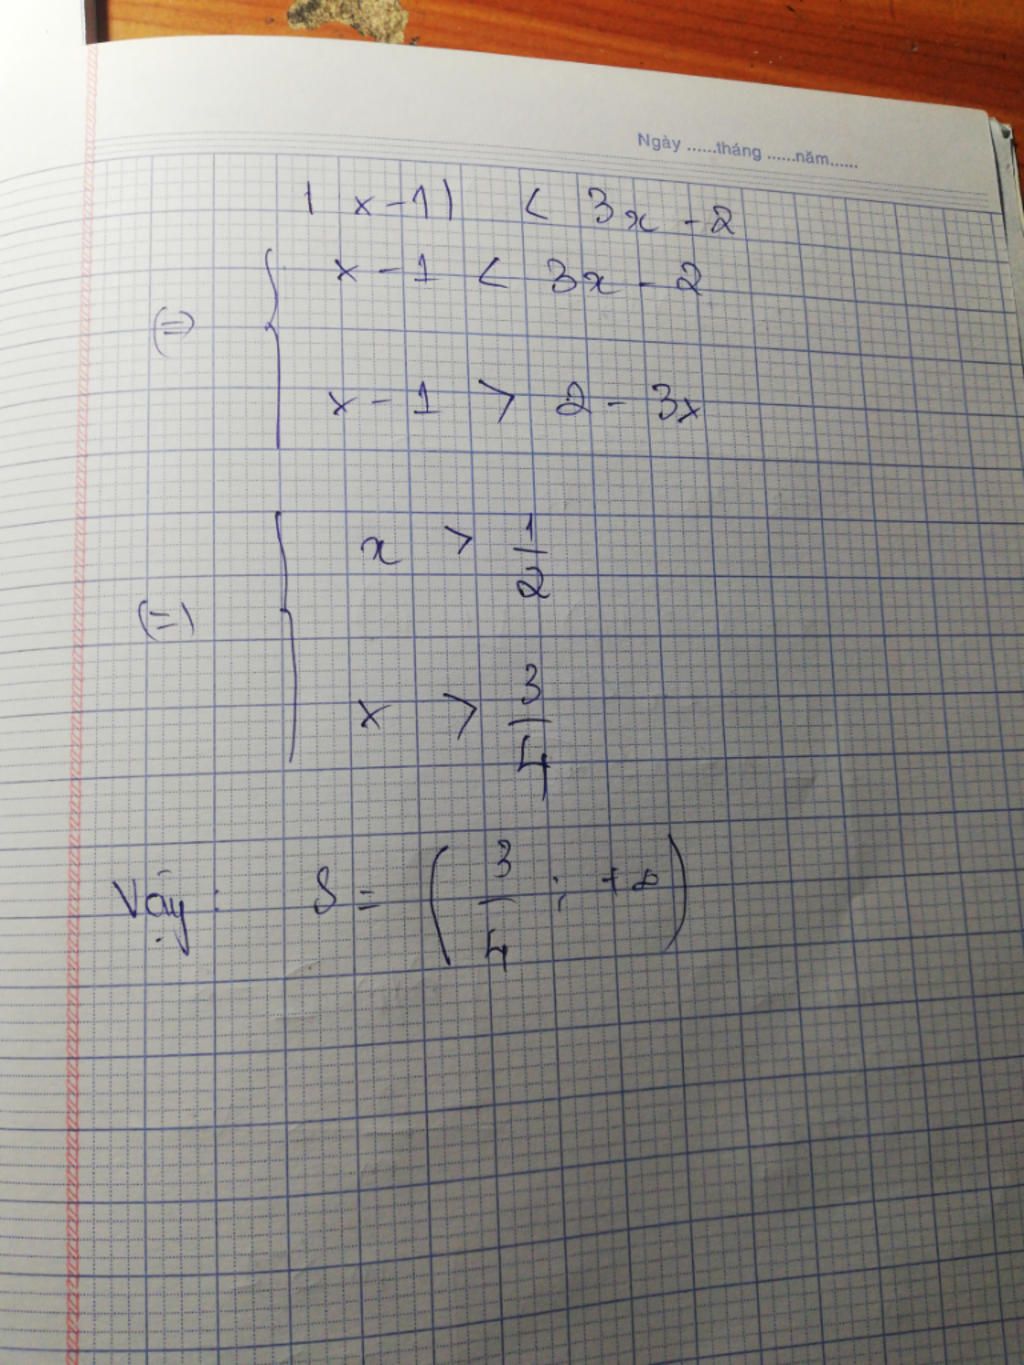 Ngày ......tháng ......năm......
| x - 1 | < 3x - 2
(=) { x - 1 < 3x - 2
x - 1 > 2 - 3x
(=) { x > 1/2
x > 3/4
Vậy : S = ( 3/4 ; +∞ )